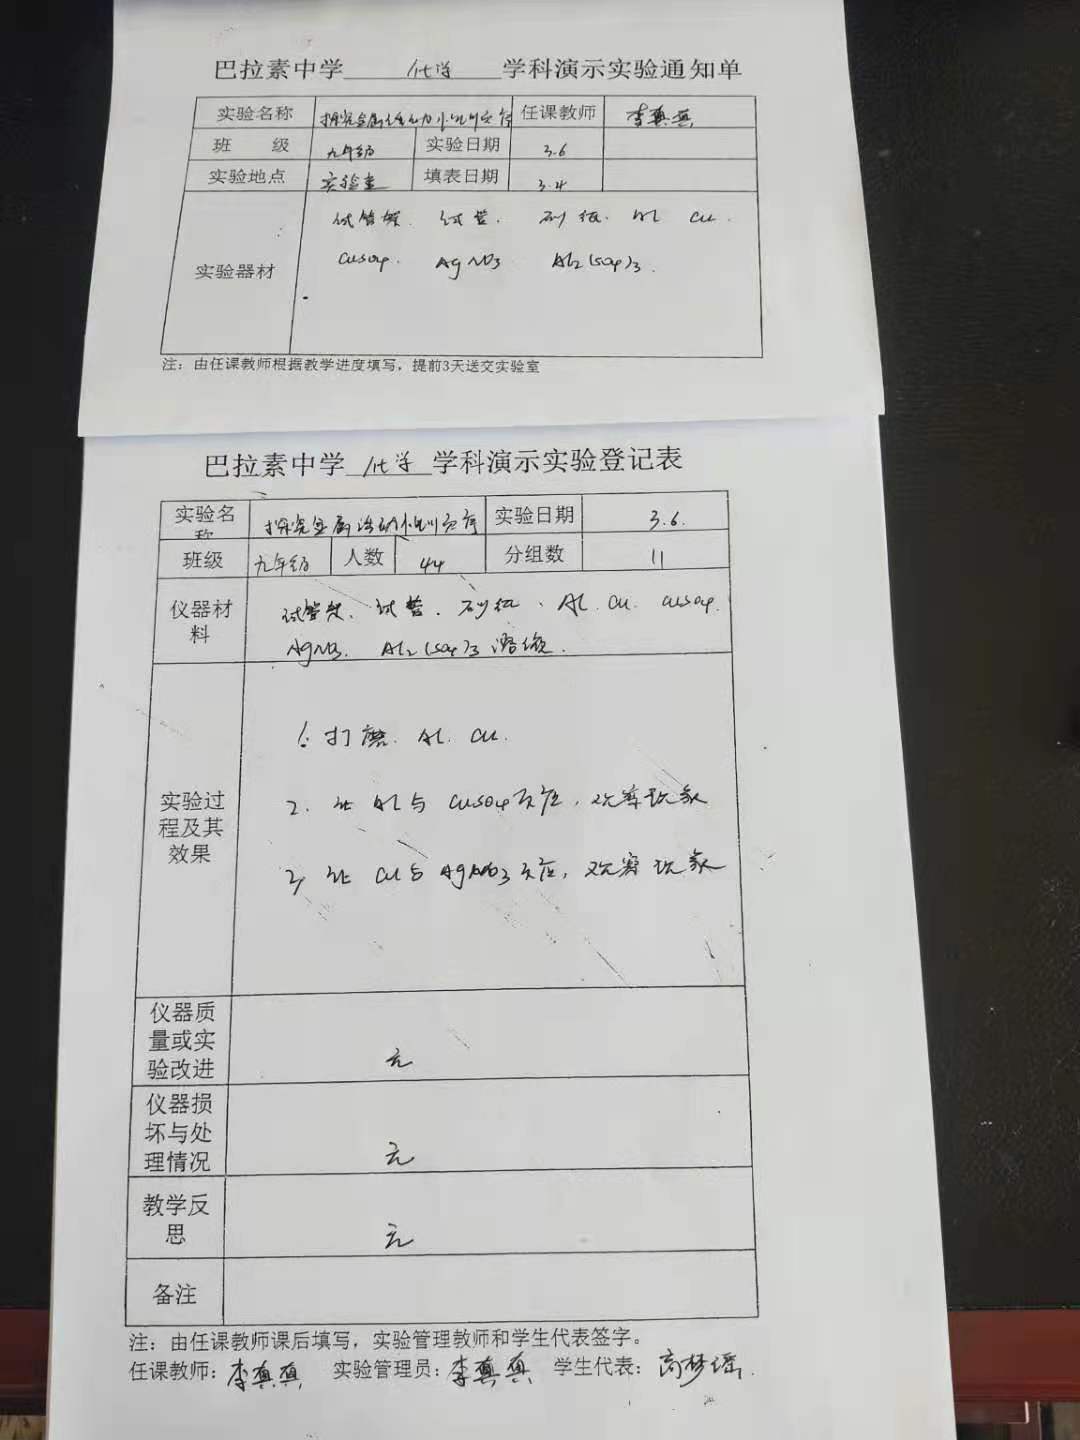 巴拉素中学 化学 学科演示实验通知单
实验名称 探究金属活动性顺序 任课教师 李真真
班 级 九年级 实验日期 3.6
实验地点 实验室 填表日期 3.4
实验器材 试管架. 试管. 砂纸. Al Cu.
CuSO4. AgNO3 Al2(SO4)3.
注：由任课教师根据教学进度填写，提前3天送交实验室
巴拉素中学 化学 学科演示实验登记表
实验名称 探究金属活动性顺序 实验日期 3.6.
班级 九年级 人数 44 分组数 11
仪器材料 试管架、试管. 砂纸、Al. Cu. CuSO4.
AgNO3. Al2(SO4)3溶液.
实验过程及其效果
1. 打磨. Al. Cu.
2. 让Al与CuSO4反应，观察现象
3. 让Cu与AgNO3反应，观察现象
仪器质量或实验改进 无
仪器损坏与处理情况 无
教学反思 无
备注
注：由任课教师课后填写，实验管理教师和学生代表签字。
任课教师：李真真 实验管理员：李真真 学生代表：高梦瑶.